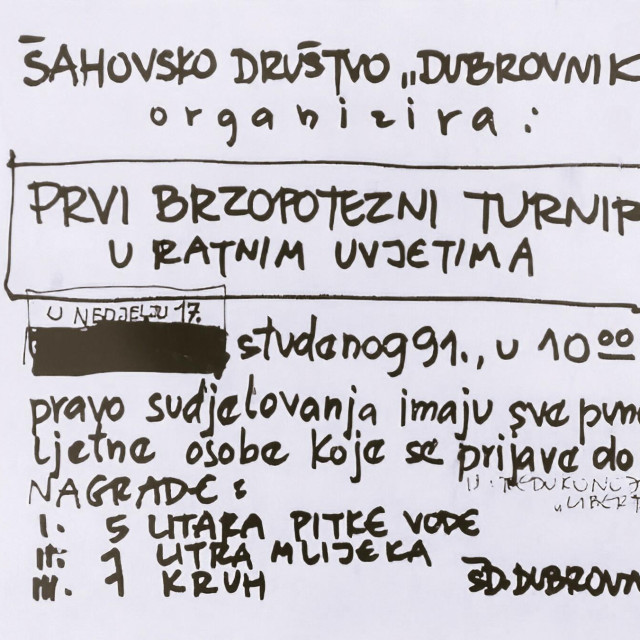 ŠAHOVSKO DRUŠTVO „DUBROVNIK
organizira:
PRVI BRZOPOTEZNI TURNIR
U RATNIM UVJETIMA
U NEDJELJU 17.
studenog 91., u 10 00
pravo sudjelovanja imaju sve puno
ljetne osobe koje se prijave do
NAGRADE:
I. 5 LITARA PITKE VODE
II. 1 LITRA MLIJEKA
III. 1 KRUH
ŠD. DUBROVN